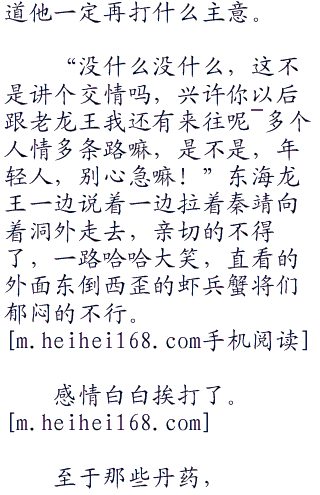 道他一定再打什么主意。
“没什么没什么，这不
是讲个交情吗，兴许你以后
跟老龙王我还有来往呢¯多个
人情多条路嘛，是不是，年
轻人，别心急嘛！”东海龙
王一边说着一边拉着秦靖向
着洞外走去，亲切的不得
了，一路哈哈大笑，直看的
外面东倒西歪的虾兵蟹将们
郁闷的不行。
[m.heihei168.com手机阅读]
感情白白挨打了。
[m.heihei168.com]
至于那些丹药，